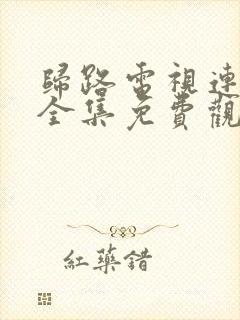 歸路電視連
全集免費觀
紅藥錯